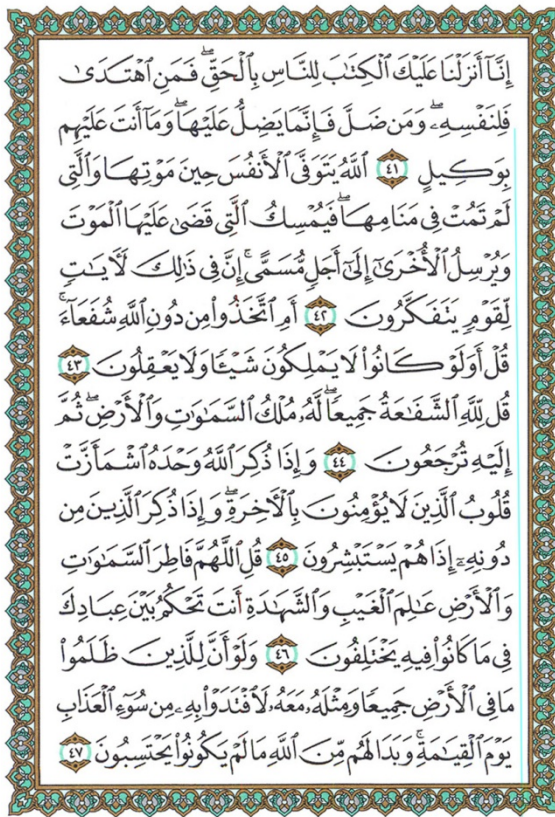 إِنَّآ أَنزَلْنَا عَلَيْكَ ٱلْكِتَـٰبَ لِلنَّاسِ بِٱلْحَقِّ ۖ فَمَنِ ٱهْتَدَىٰ
فَلِنَفْسِهِۦ ۖ وَمَن ضَلَّ فَإِنَّمَا يَضِلُّ عَلَيْهَا ۖ وَمَآ أَنتَ عَلَيْهِم
بِوَكِيلٍ ٤١ ٱللَّهُ يَتَوَفَّى ٱلْأَنفُسَ حِينَ مَوْتِهَا وَٱلَّتِى
لَمْ تَمُتْ فِى مَنَامِهَا ۖ فَيُمْسِكُ ٱلَّتِى قَضَىٰ عَلَيْهَا ٱلْمَوْتَ
وَيُرْسِلُ ٱلْأُخْرَىٰٓ إِلَىٰٓ أَجَلٍ مُّسَمًّى ۚ إِنَّ فِى ذَٰلِكَ لَـَٔايَـٰتٍ
لِّقَوْمٍ يَتَفَكَّرُونَ ٤٢ أَمِ ٱتَّخَذُوا۟ مِن دُونِ ٱللَّهِ شُفَعَآءَ ۚ
قُلْ أَوَلَوْ كَانُوا۟ لَا يَمْلِكُونَ شَيْـًٔا وَلَا يَعْقِلُونَ ٤٣
قُل لِّلَّهِ ٱلشَّفَـٰعَةُ جَمِيعًا ۖ لَّهُۥ مُلْكُ ٱلسَّمَـٰوَٰتِ وَٱلْأَرْضِ ۖ ثُمَّ
إِلَيْهِ تُرْجَعُونَ ٤٤ وَإِذَا ذُكِرَ ٱللَّهُ وَحْدَهُ ٱشْمَأَزَّتْ
قُلُوبُ ٱلَّذِينَ لَا يُؤْمِنُونَ بِٱلْـَٔاخِرَةِ ۖ وَإِذَا ذُكِرَ ٱلَّذِينَ مِن
دُونِهِۦٓ إِذَا هُمْ يَسْتَبْشِرُونَ ٤٥ قُلِ ٱللَّهُمَّ فَاطِرَ ٱلسَّمَـٰوَٰتِ
وَٱلْأَرْضِ عَـٰلِمَ ٱلْغَيْبِ وَٱلشَّهَـٰدَةِ أَنتَ تَحْكُمُ بَيْنَ عِبَادِكَ
فِى مَا كَانُوا۟ فِيهِ يَخْتَلِفُونَ ٤٦ وَلَوْ أَنَّ لِلَّذِينَ ظَلَمُوا۟
مَا فِى ٱلْأَرْضِ جَمِيعًا وَمِثْلَهُۥ مَعَهُۥ لَٱفْتَدَوْا۟ بِهِۦ مِن سُوٓءِ ٱلْعَذَابِ
يَوْمَ ٱلْقِيَـٰمَةِ ۚ وَبَدَا لَهُم مِّنَ ٱللَّهِ مَا لَمْ يَكُونُوا۟ يَحْتَسِبُونَ ٤٧